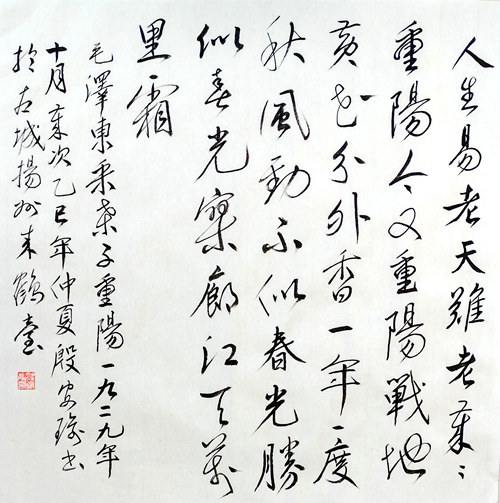 人生易老天難老歲〻
重陽今又重陽戰地
黃花分外香一年一度
秋風勁不似春光勝
似春光寥廓江天萬
里霜
毛澤東采桑子重陽一九二九年
十月歲次乙巳年仲夏殷书
於古城揚州来鶴臺